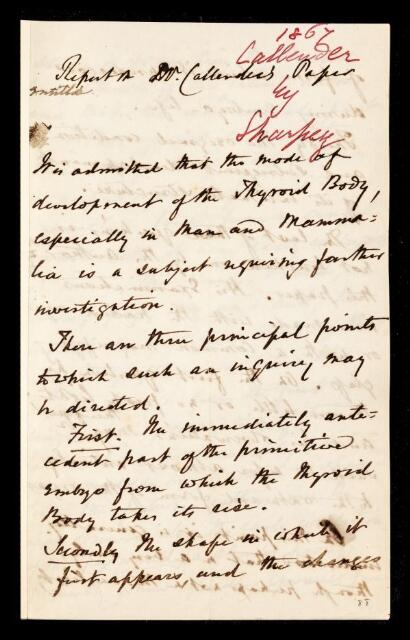 1867
Callender
by
Sharpey
Report on Dr. Callender's Paper
entitled
It is admitted that the mode of
development of the Thyroid Body,
especially in Man and Mamma=
lia is a subject requiring farther
investigation.
There are three principal points
to which such an inquiry may
be directed.
First. The immediately ante=
cedent part of the primitive
Embryo from which the Thyroid
Body takes its rise.
Secondly the shape in which it
first appears and the changes
88